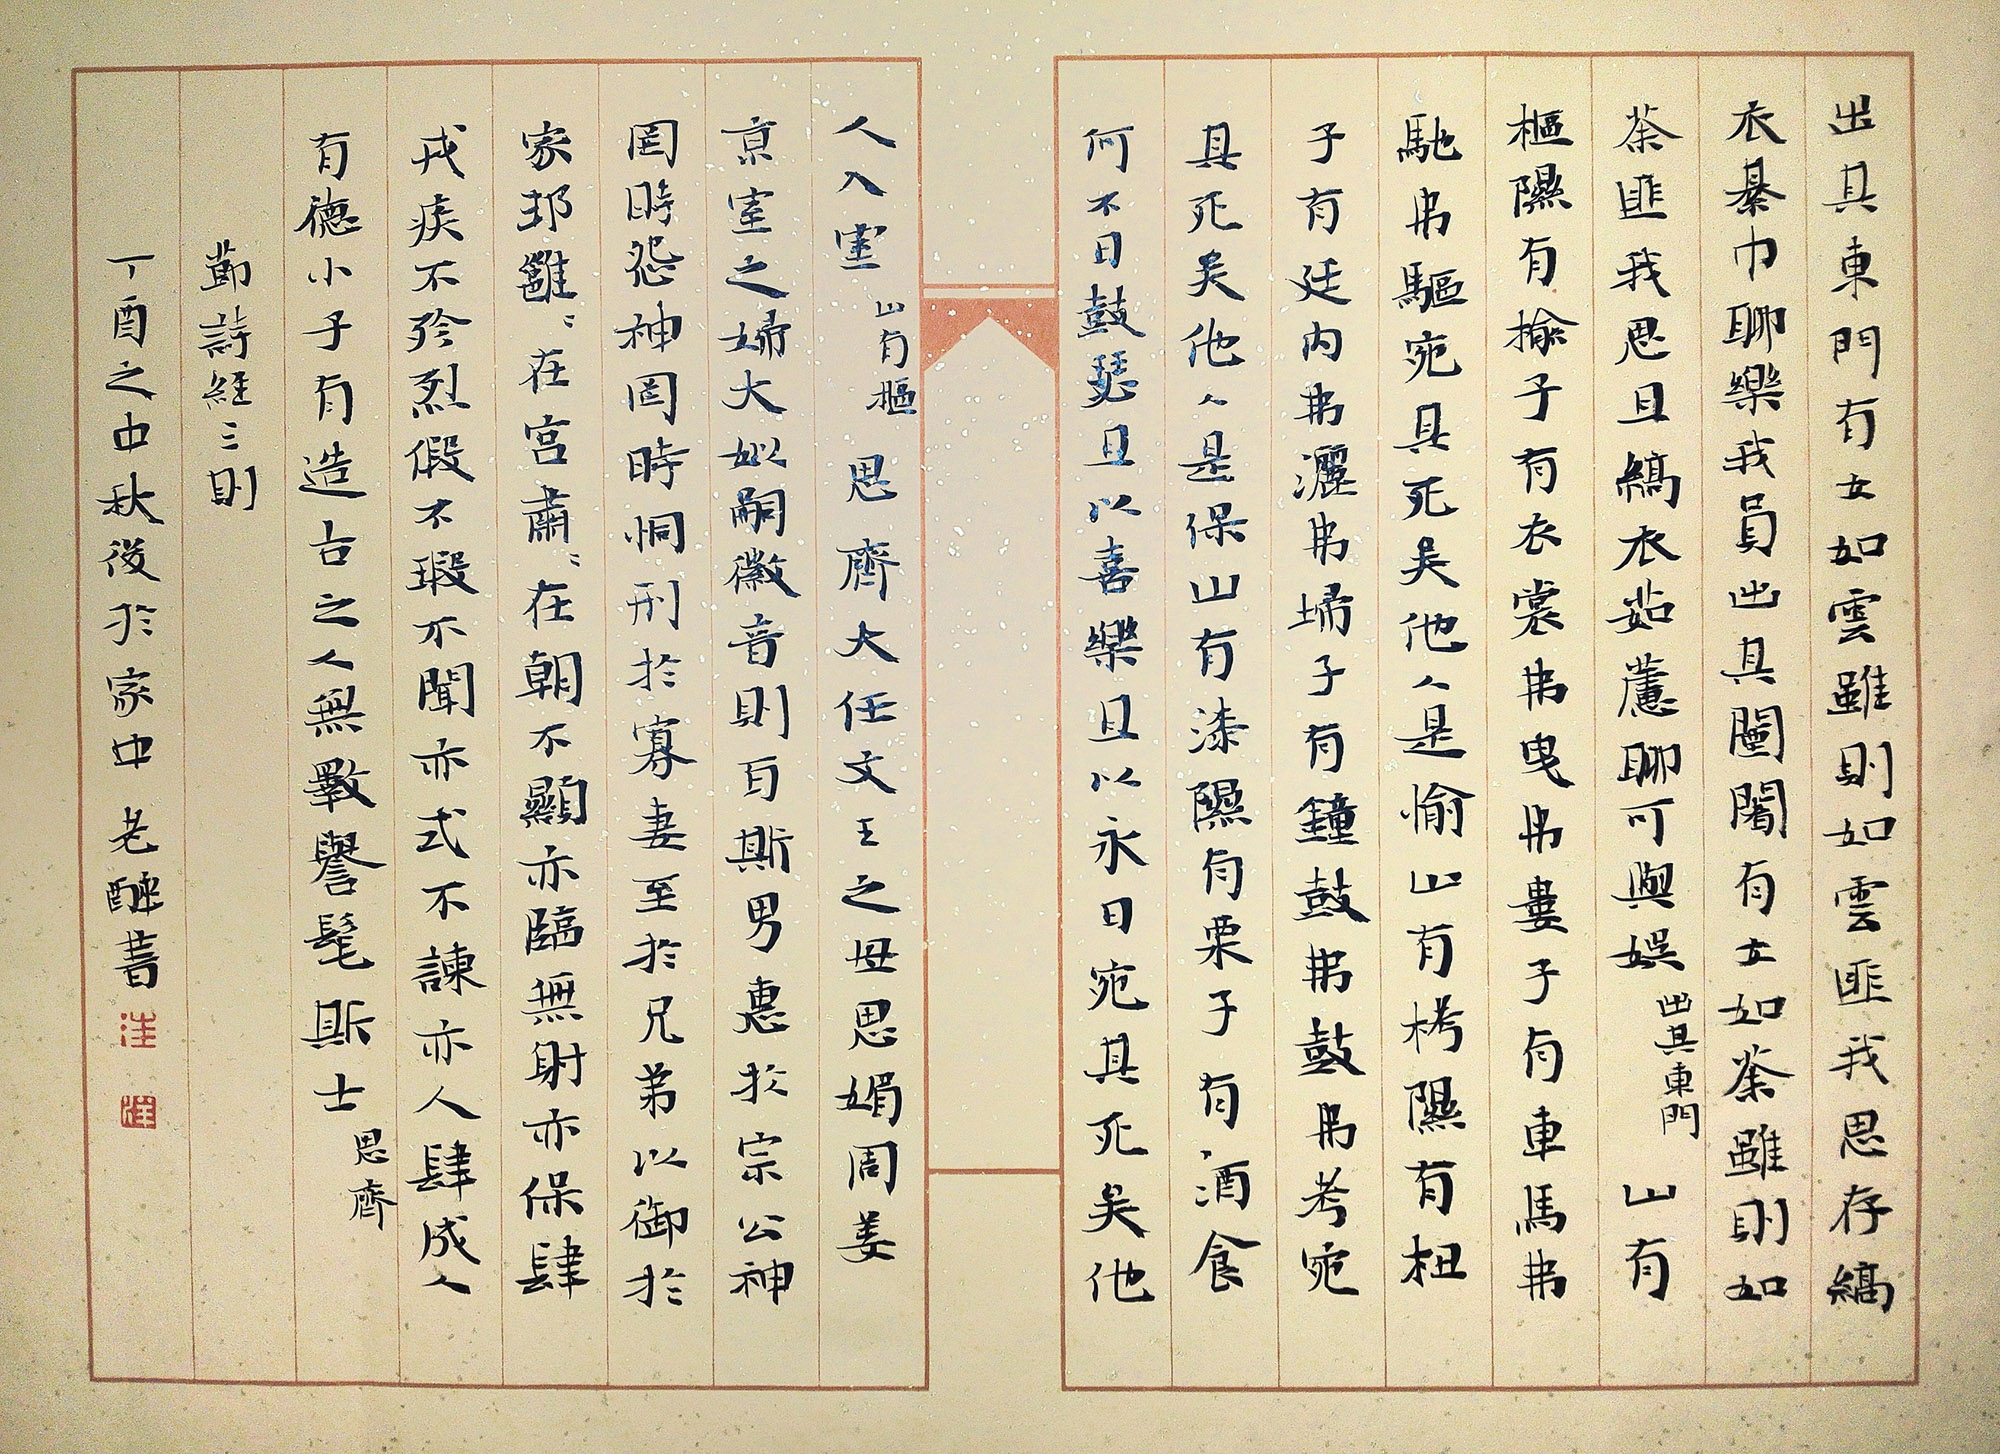 出其東門有女如雲雖則如雲匪我思存縞
衣綦巾聊樂我員出其闉闍有女如荼雖則如
荼匪我思且縞衣茹藘聊可與娛 出其東門 山有
樞隰有榆子有衣裳弗曳弗婁子有車馬弗
馳弗驅宛其死矣他人是愉山有栲隰有杻
子有廷內弗灑弗埽子有鐘鼓弗鼓弗考宛
其死矣他人是保山有漆隰有栗子有酒食
何不日鼓瑟且以喜樂且以永日宛其死矣他
人入室 山有樞 思齊大任文王之母思媚周姜
京室之婦大姒嗣徽音則百斯男惠於宗公神
罔時怨神罔時恫刑於寡妻至於兄弟以御於
家邦雝〻在宮肅〻在朝不顯亦臨無射亦保肆
戎疾不殄烈假不瑕不聞亦式不諫亦人肆成人
有德小子有造古之人無斁譽髦斯士 思齊
節詩經三則
丁酉之中秋後於家中老書